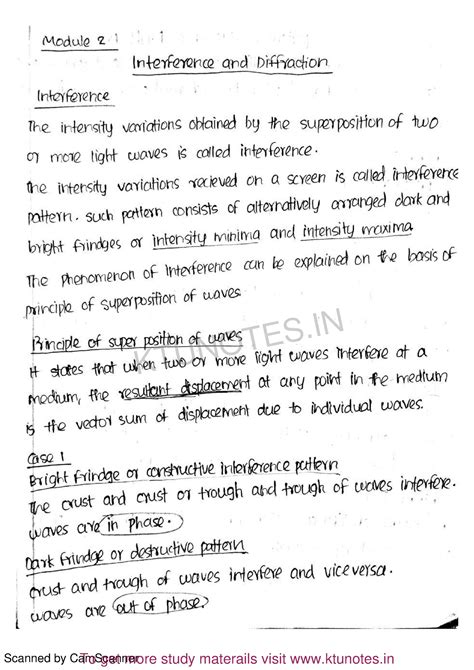 Module 2
Interference and Diffraction
Interference
The intensity variations obtained by the superposition of two
or more light waves is called interference.
The intensity variations recieved on a screen is called interference
pattern. such pattern consists of alternatively arranged dark and
bright frindges or intensity minima and intensity maxima
The phenomenon of Interference can be explained on the basis of
principle of superposition of waves
KTUNOTES.IN
Principle of super position of waves
It states that when two or more light waves interfere at a
medium, the resultant displacement at any point in the medium
is the vector sum of displacement due to individual waves.
Case 1
Bright frindge or constructive interference pattern
The crust and crust or trough and trough of waves interfere.
waves are in phase.
Dark frindge or destructive pattern
crust and trough of waves interfere and vice versa.
waves are out of phase.
Scanned by CamScanner
To get more study materails visit www.ktunotes.in